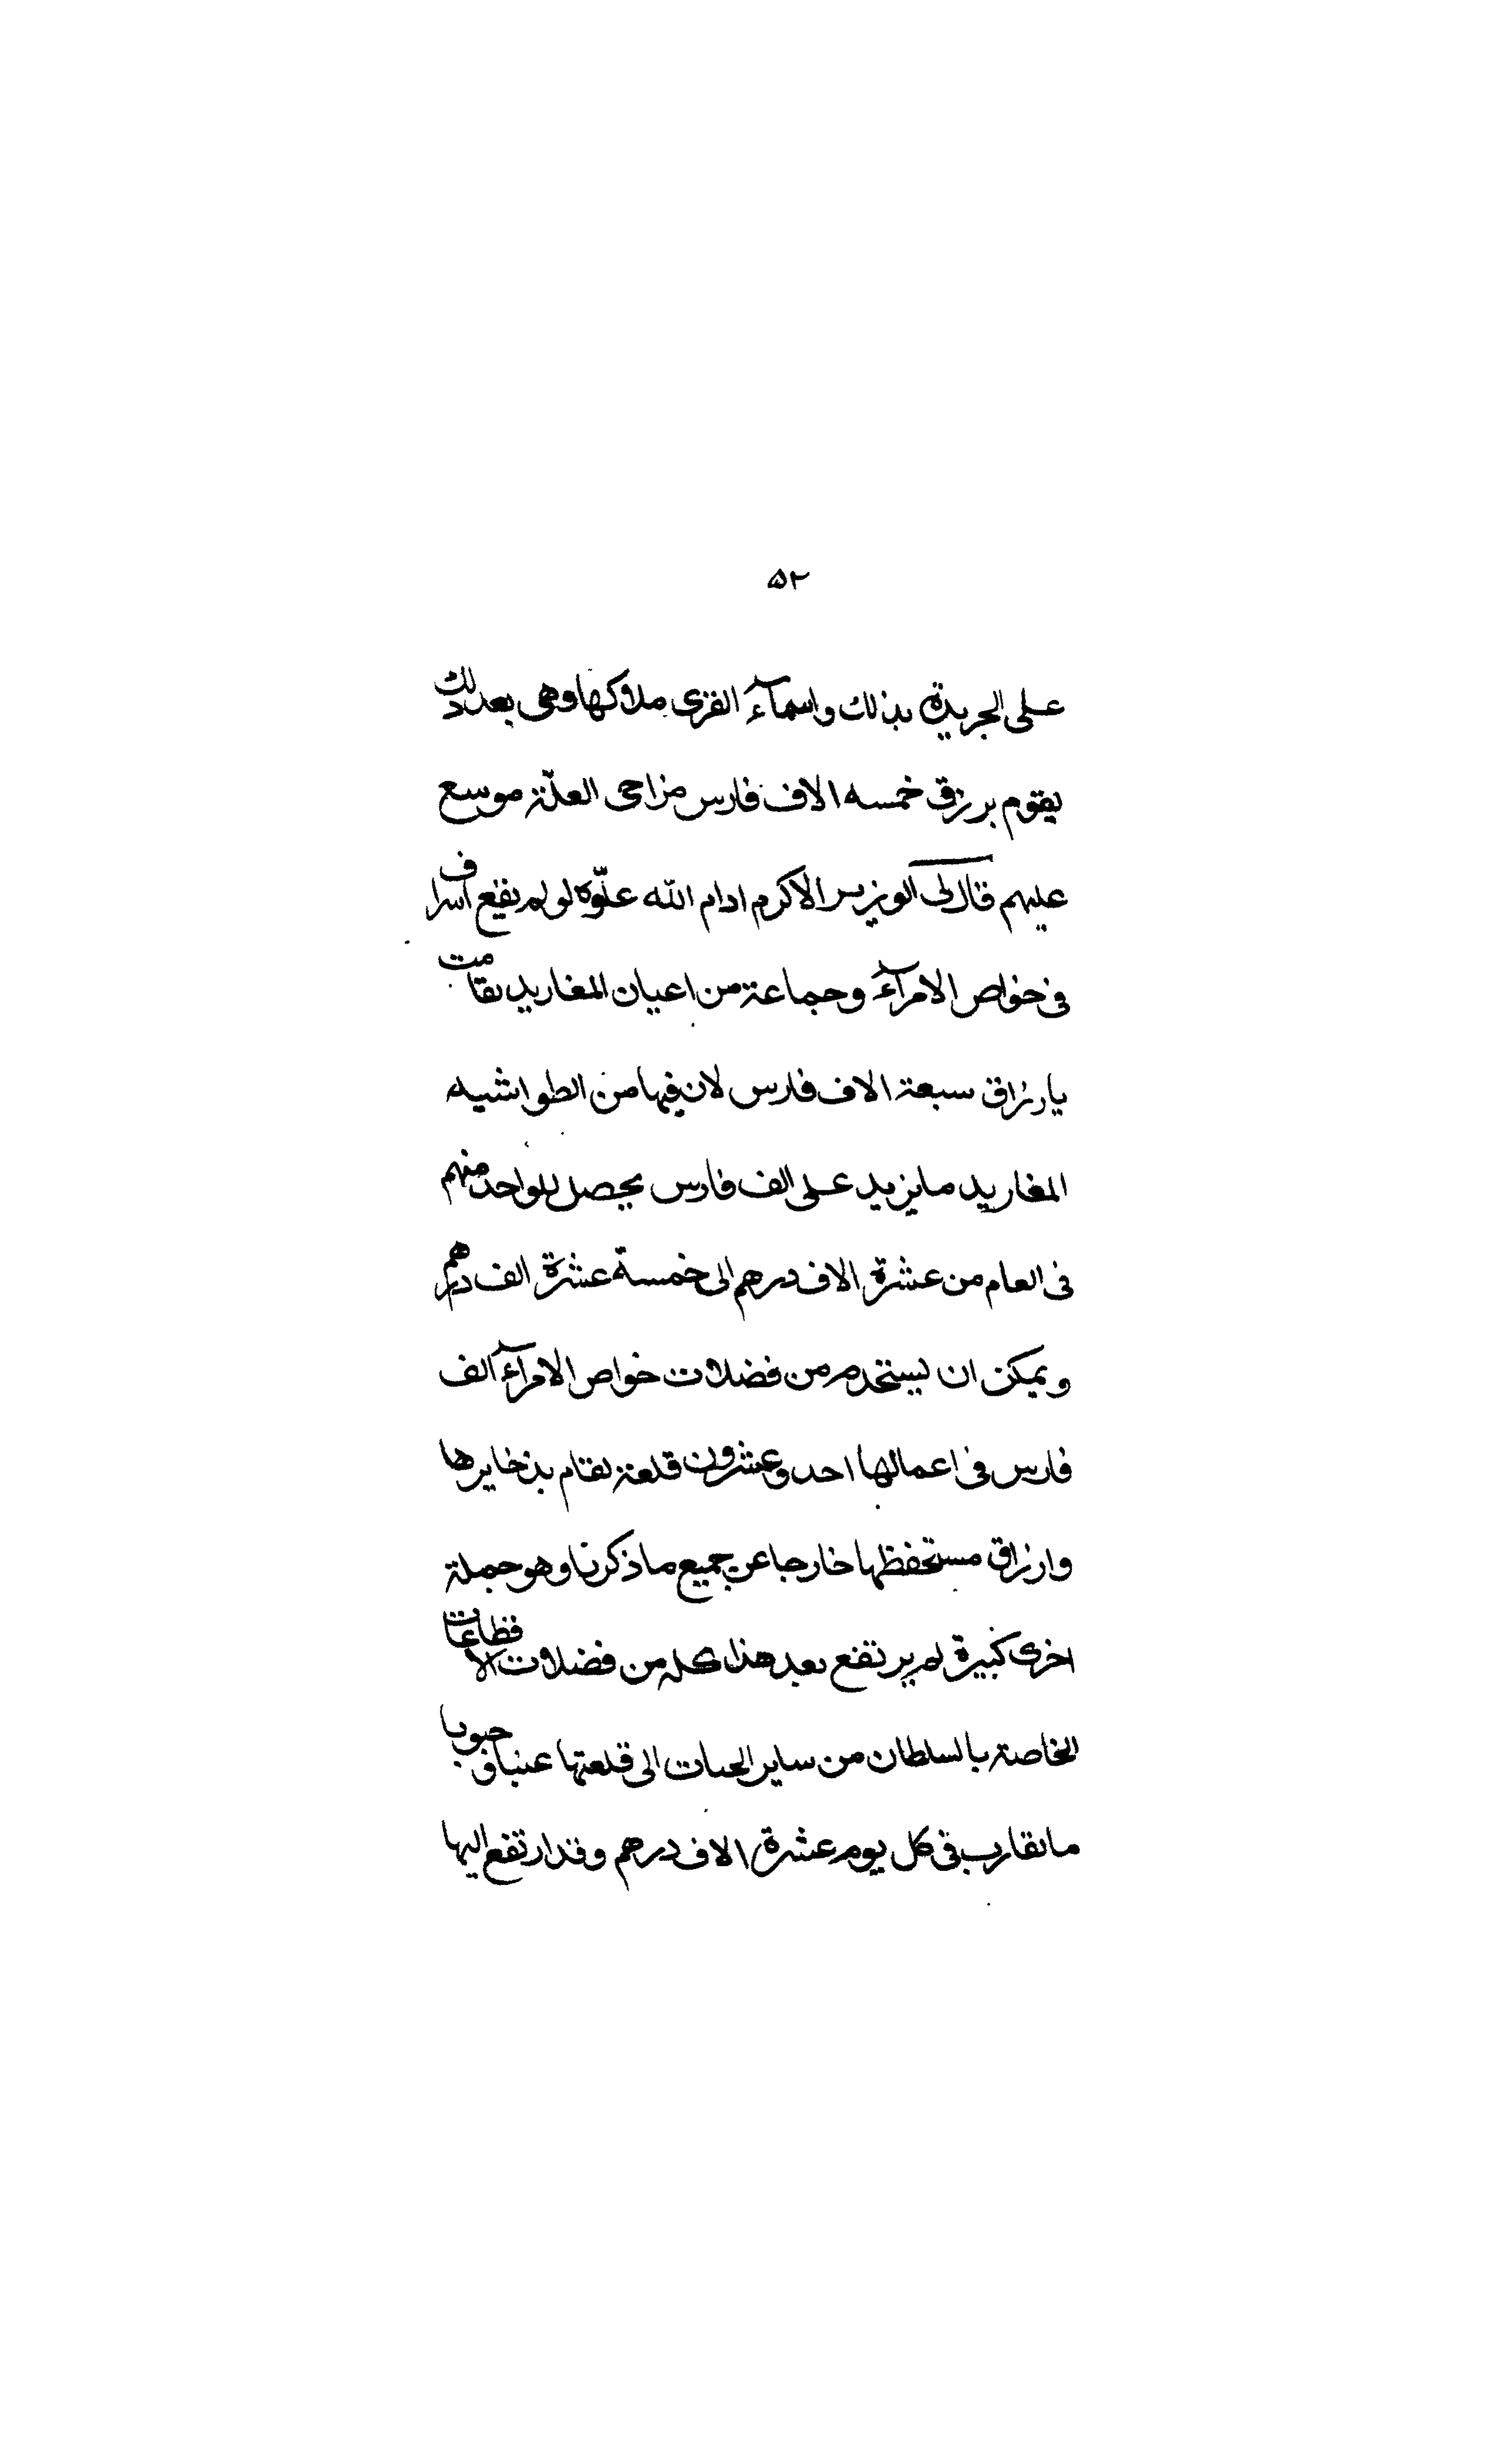 ۵۲
على الجريدة بذلك واسمآء القرى وملاكها وهى بعد ذلك
يقوم برزق خمسه الاف فارس مزاحى العلة موسع
عليهم قال لى الوزير الاكرم ادام الله علوّه لو لم يقع اسراف
فى خواص الامرآء وجماعة من اعيان المفاريد لقامت
بارزاق سبعة الاف فارس لان فيها من الطواشيه
المفاريد ما يزيد على الف فارس يحصل للواحد منهم
فى العام من عشرة الاف درهم الى خمسة عشرة الف درهم
ويمكن ان يستخدم من فضلات خواص الامرآء الف
فارس فى اعمالها احد وعشرون قلعة تقام بذخايرها
وارزاق مستحفظها خارجا عن جميع ما ذكرنا وهو جملة
اخرى كبيرة لم يرتفع بعد هذا كله من فضلات الاقطاعات
الخاصة بالسلطان من ساير الجبات الى قلعتها عنبا وحبوبا
ما تقارب فى كل يوم عشرة الاف درهم وقد ارتفع اليها